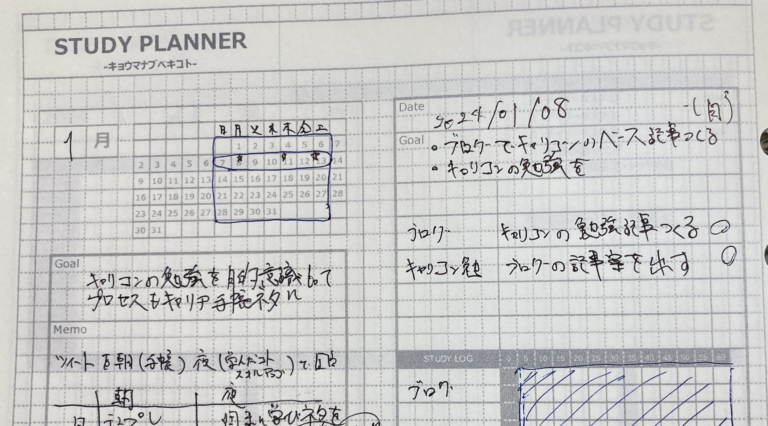 STUDY PLANNER
-キョウマナブベキコト-
1 月
日 月 火 水 木 金 土
1 2 3 4 5 6 7
2 3 4 5 6 7 8 9 10 11 12 13 14
9 10 11 12 13 14 15 16 17 18 19 20 21
16 17 18 19 20 21 22 23 24 25 26 27 28
23 24 25 26 27 28 29 30 31
30 31
Goal
キャリコンの勉強を目的意識もって
プロセスもキャリア手帳ネタに
Memo
ツイートを朝(手帳) 夜(学んだコト
スキルアップ)で
朝 夜
Date 2024/01/08 (月)
Goal
・ブログでキャリコンのベース記事つくる
・キャリコンの勉強を
ブログ キャリコンの勉強記事つくる ○
キャリコン勉 ブログの記事案を出す ○
STUDY LOG 0 5 10 15 20 25 30 35 40 45 50 55 60
ブログ